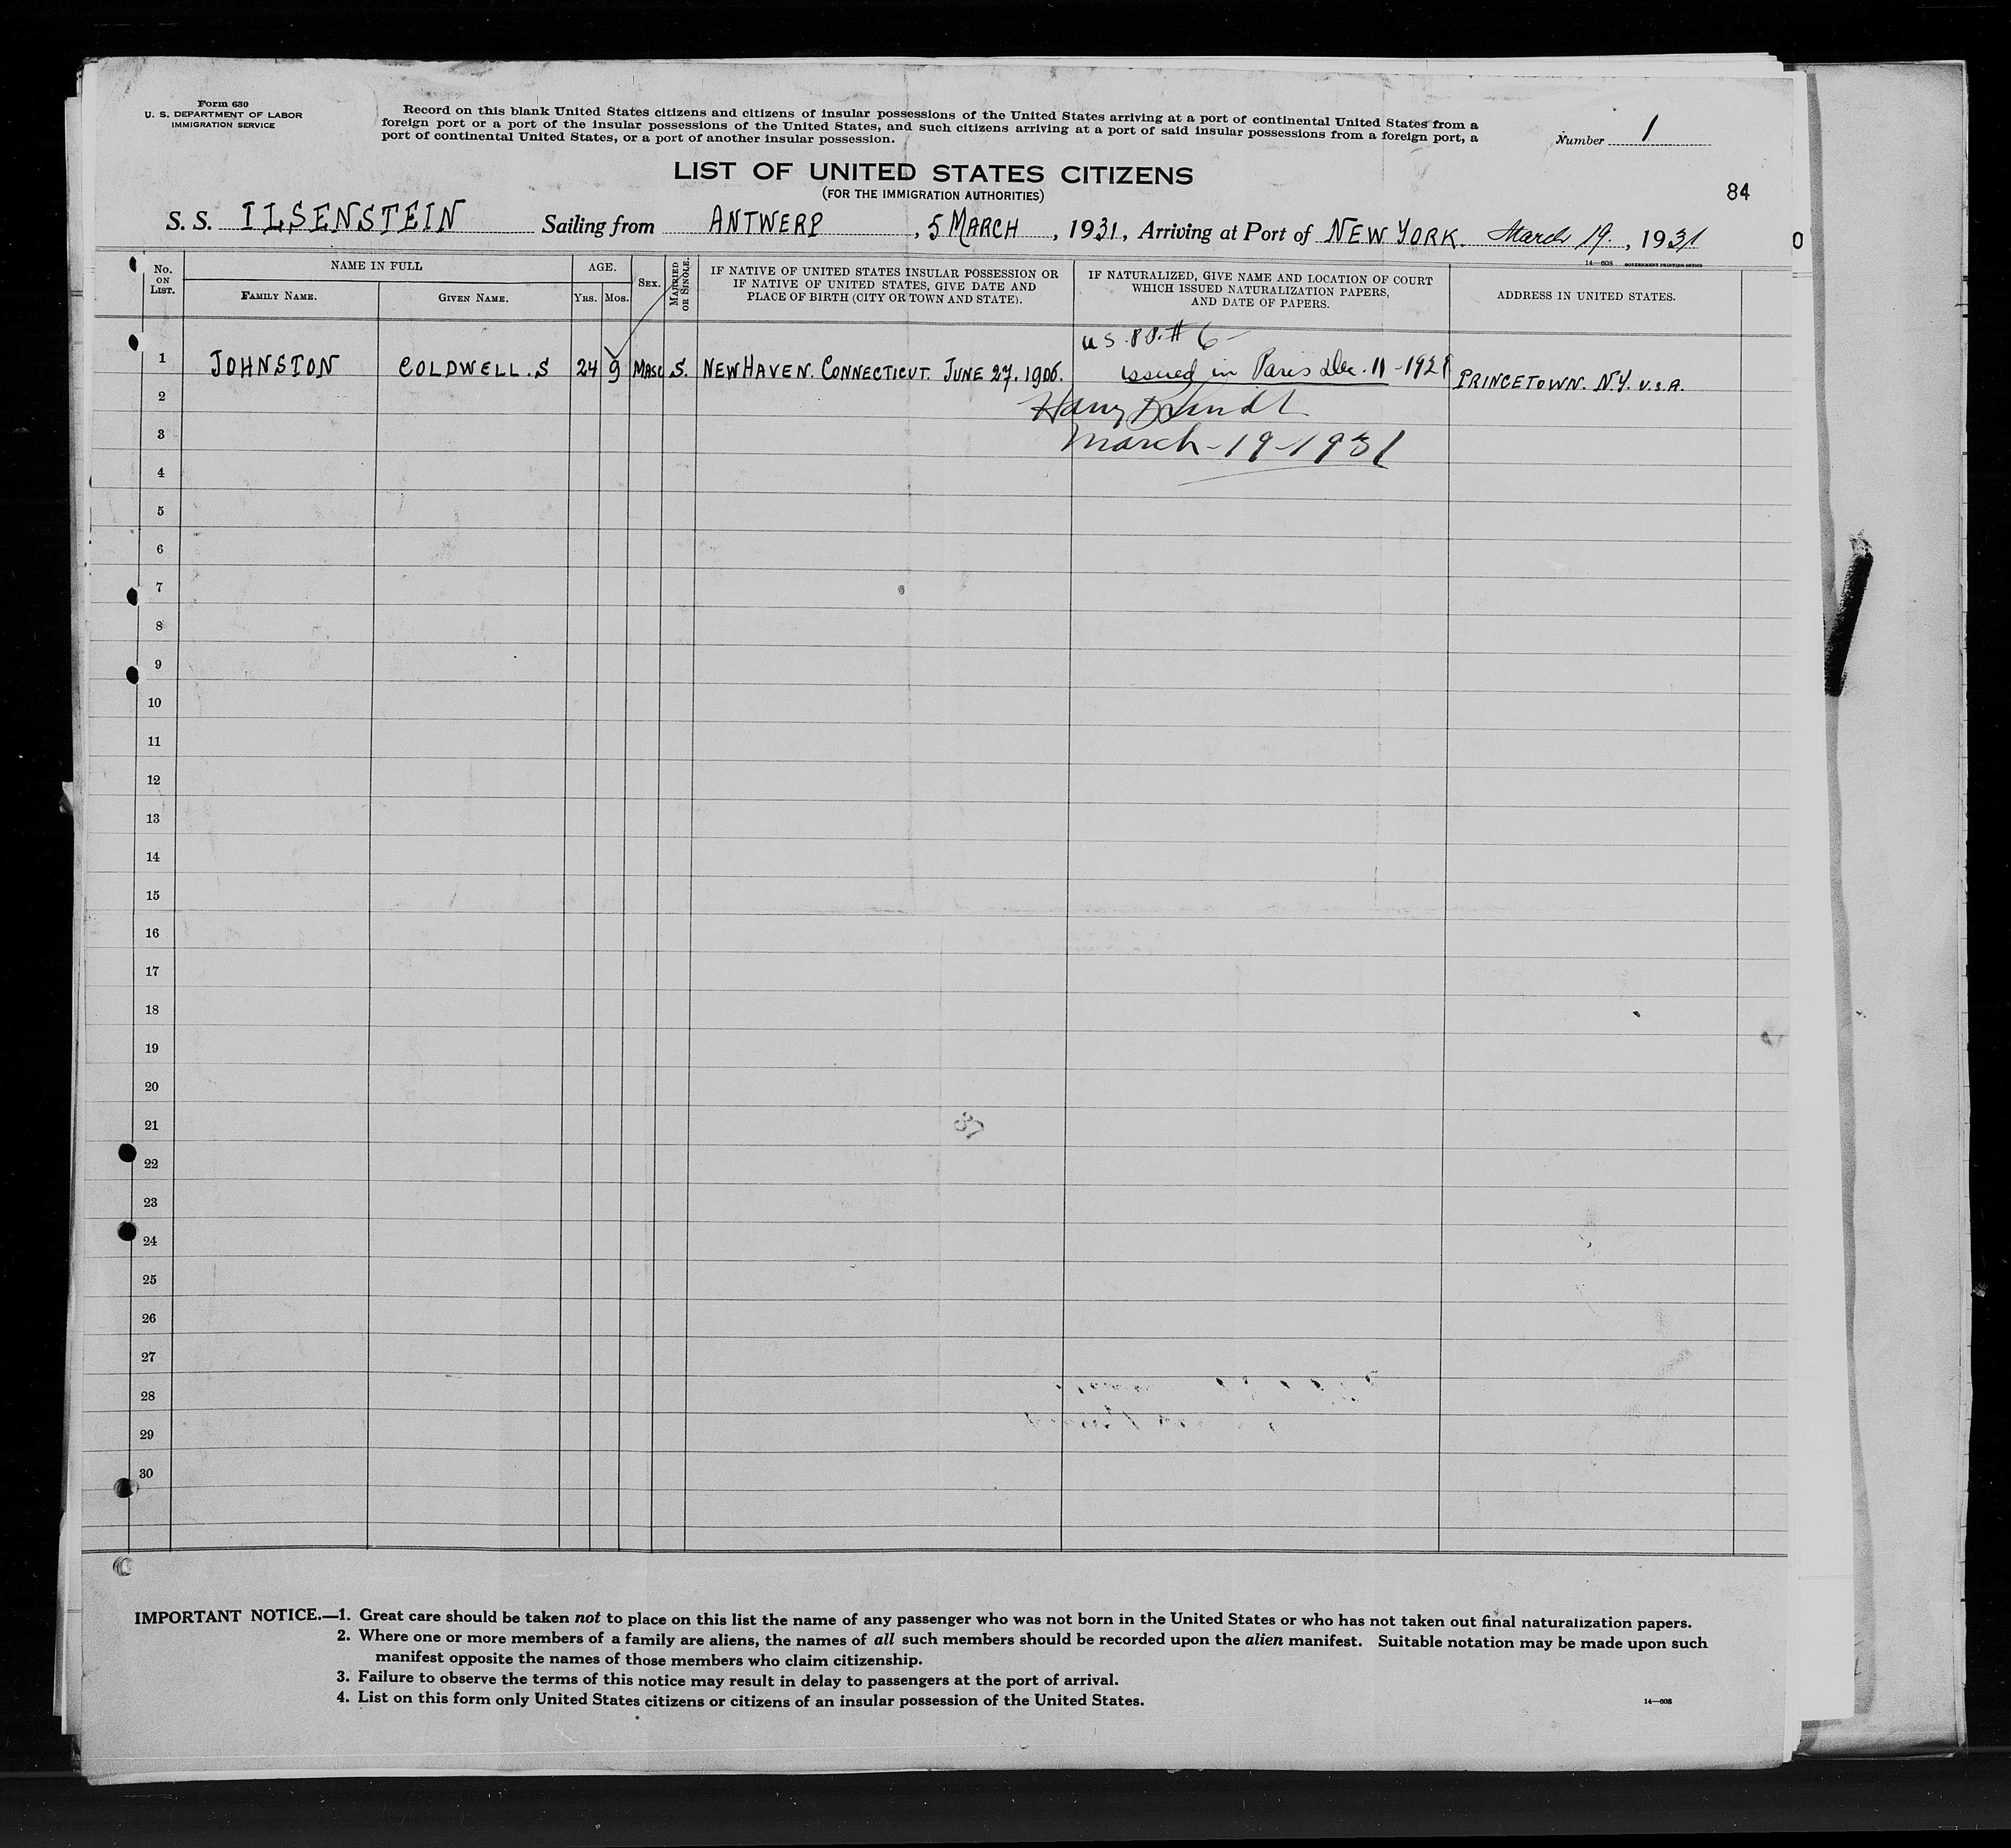 Form 630
U. S. DEPARTMENT OF LABOR
IMMIGRATION SERVICE
Record on this blank United States citizens and citizens of insular possessions of the United States arriving at a port of continental United States from a
foreign port or a port of the insular possessions of the United States, and such citizens arriving at a port of said insular possessions from a foreign port, a
port of continental United States, or a port of another insular possession.
Number 1
LIST OF UNITED STATES CITIZENS
(FOR THE IMMIGRATION AUTHORITIES)
84
S. S. ILSENSTEIN Sailing from ANTWERP, 5 MARCH, 1931, Arriving at Port of NEW YORK. March 19., 1931
14—608 GOVERNMENT PRINTING OFFICE
No. ON LIST.
NAME IN FULL
FAMILY NAME.
GIVEN NAME.
AGE.
YRS.
MOS.
SEX.
MARRIED OR SINGLE.
IF NATIVE OF UNITED STATES INSULAR POSSESSION OR
IF NATIVE OF UNITED STATES, GIVE DATE AND
PLACE OF BIRTH (CITY OR TOWN AND STATE).
IF NATURALIZED, GIVE NAME AND LOCATION OF COURT
WHICH ISSUED NATURALIZATION PAPERS,
AND DATE OF PAPERS.
ADDRESS IN UNITED STATES.
U.S. P.P. # 6 -
1 JOHNSTON COLDWELL. S 24 9 MASC S. NEW HAVEN. CONNECTICUT. JUNE 27. 1906. issued in Paris Dec. 11 - 1928 PRINCETOWN. N.Y. U.S.A.
2 Harry Brandt
3 March - 19 - 1931
4
5
6
7
8
9
10
11
12
13
14
15
16
17
18
19
20
21
37
22
23
24
25
26
27
28
29
30
IMPORTANT NOTICE.—1. Great care should be taken not to place on this list the name of any passenger who was not born in the United States or who has not taken out final naturalization papers.
2. Where one or more members of a family are aliens, the names of all such members should be recorded upon the alien manifest. Suitable notation may be made upon such
manifest opposite the names of those members who claim citizenship.
3. Failure to observe the terms of this notice may result in delay to passengers at the port of arrival.
4. List on this form only United States citizens or citizens of an insular possession of the United States.
14—608